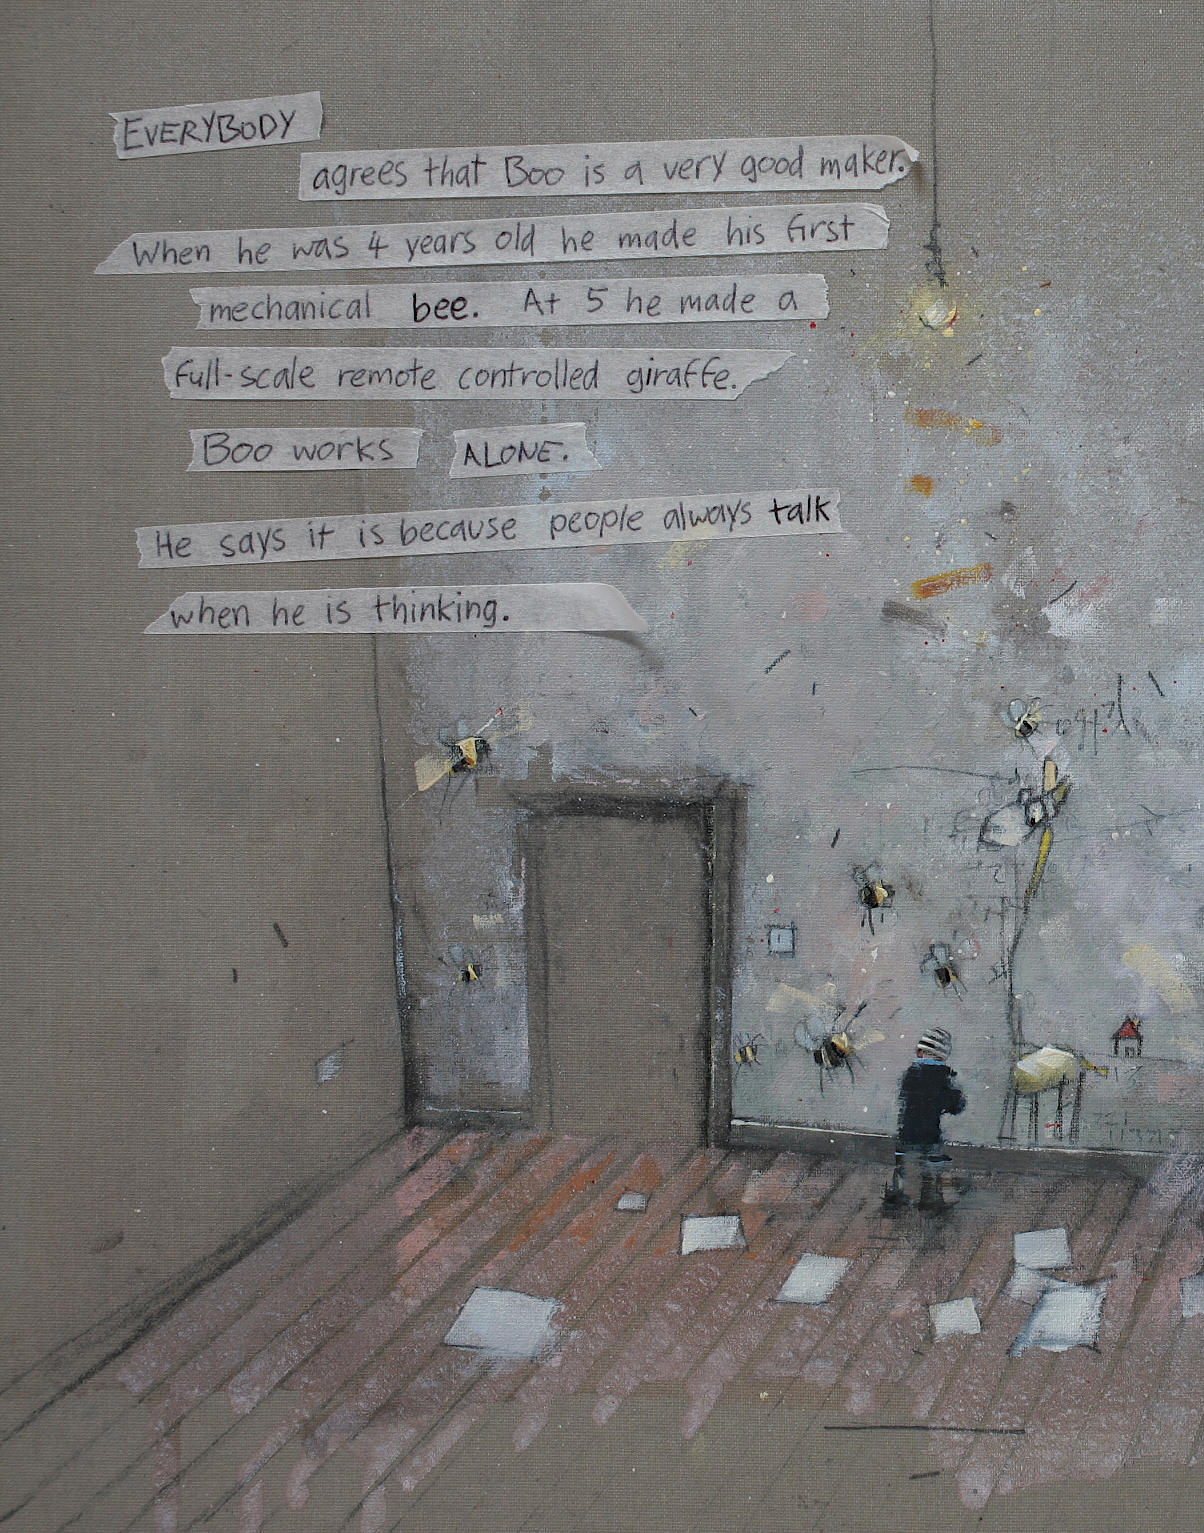 EVERYBODY
agrees that Boo is a very good maker.
When he was 4 years old he made his first
mechanical bee. At 5 he made a
full-scale remote controlled giraffe.
Boo works ALONE.
He says it is because people always talk
when he is thinking.